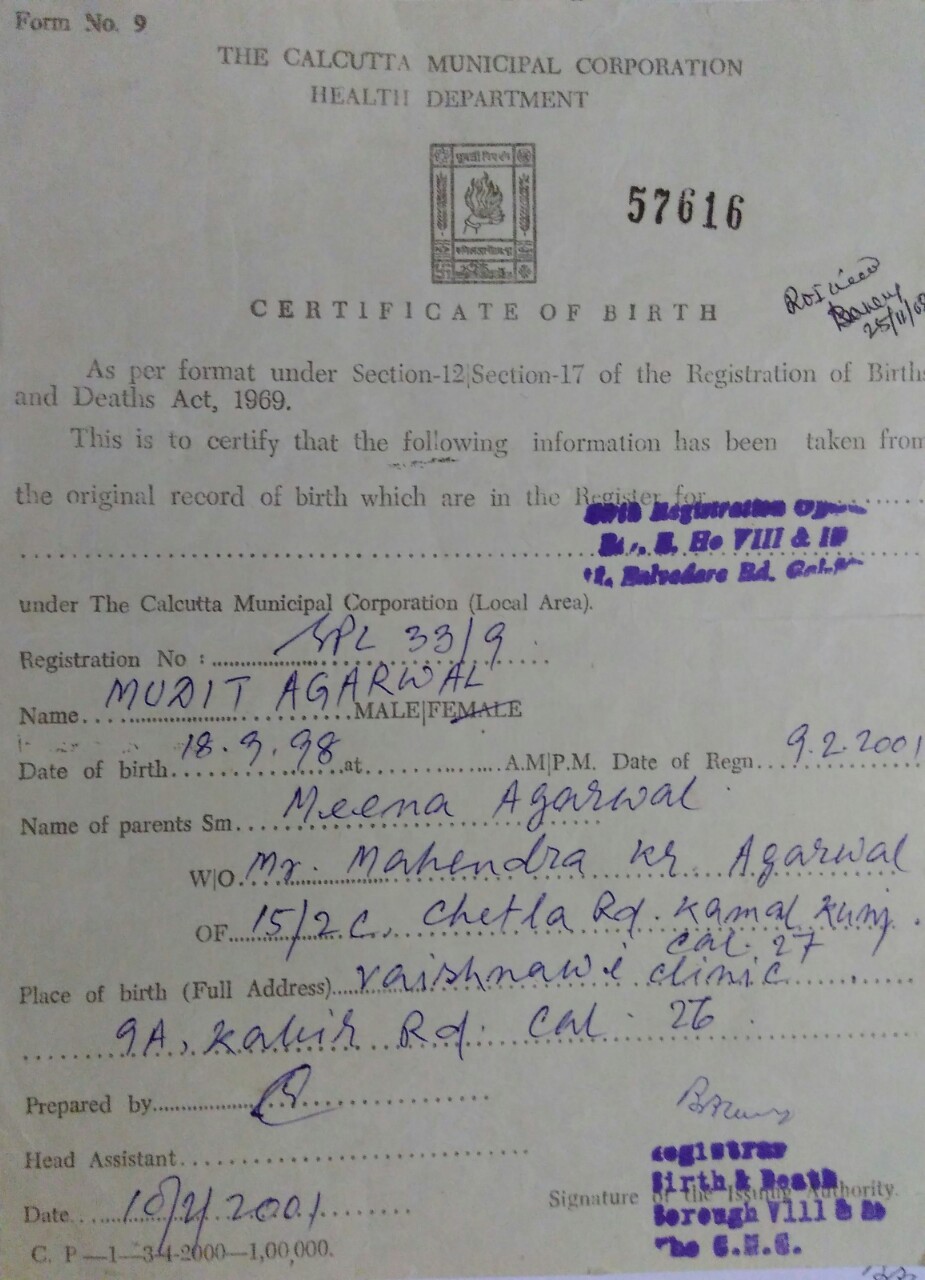 Form No. 9
THE CALCUTTA MUNICIPAL CORPORATION
HEALTH DEPARTMENT
57616
CERTIFICATE OF BIRTH
25/11/08
As per format under Section-12|Section-17 of the Registration of Births
and Deaths Act, 1969.
This is to certify that the following information has been taken from
the original record of birth which are in the Register for
Registration
VIII &
Belvedere Rd.
under The Calcutta Municipal Corporation (Local Area).
Registration No : SPL 33/9
Name MUDIT AGARWAL MALE|FEMALE
Date of birth 18.9.98 at A.M|P.M. Date of Regn 9.2.2001
Name of parents Sm. Meena Agarwal
W|O. Mr. Mahendra Kr. Agarwal
OF 15/2C, Chetla Rd. Kamal Kunj.
Cal. 27
Place of birth (Full Address) Vaishnawi clinic
9A, Kabir Rd. Cal. 26
Prepared by
Head Assistant
Date 10/2/2001
Signature of the Issuing Authority.
Registrar
Birth & Death
Borough VIII &
The C.M.C.
C. P—1—3-4-2000—1,00,000.